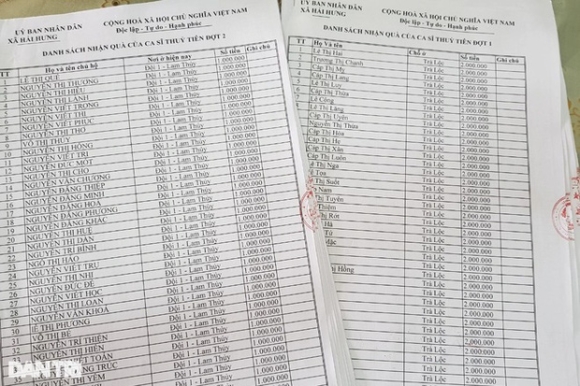 ỦY BAN NHÂN DÂN
XÃ HẢI HƯNG
CỘNG HOÀ XÃ HỘI CHỦ NGHĨA VIỆT NAM
Độc lập - Tự do - Hạnh phúc
DANH SÁCH NHẬN QUÀ CỦA CA SĨ THUỶ TIÊN ĐỢT 2
TT Họ và tên chủ hộ Nơi ở hiện nay Số tiền Ghi chú
LÊ THỊ QUÊ Đội 1 - Lam Thủy 1.000.000
NGUYỄN THỊ THƯƠNG Đội 1 - Lam Thủy 1.000.000
NGUYỄN THỊ HIẾU Đội 1 - Lam Thủy 1.000.000
NGUYỄN THỊ LÀNH Đội 1 - Lam Thủy 1.000.000
NGUYỄN VIẾT TRỌNG Đội 1 - Lam Thủy 1.000.000
NGUYỄN VIẾT THI Đội 1 - Lam Thủy 1.000.000
NGUYỄN VIẾT PHÚC Đội 1 - Lam Thủy 1.000.000
NGUYỄN THỊ THO Đội 1 - Lam Thủy 1.000.000
VÕ THỊ THUỶ Đội 1 - Lam Thủy 1.000.000
NGUYỄN THỊ HỒNG Đội 1 - Lam Thủy 1.000.000
NGUYỄN VIẾT TRÍ Đội 1 - Lam Thủy 1.000.000
NGUYỄN ĐỨC MỐT Đội 1 - Lam Thủy 1.000.000
NGUYỄN THỊ CHO Đội 1 - Lam Thủy 1.000.000
NGUYỄN VĂN CHƯƠNG Đội 1 - Lam Thủy 1.000.000
NGUYỄN ĐĂNG THIỆP Đội 1 - Lam Thủy 1.000.000
NGUYỄN ĐĂNG MINH Đội 1 - Lam Thủy 1.000.000
NGUYỄN ĐĂNG HOÀ Đội 1 - Lam Thủy 1.000.000
NGUYỄN ĐĂNG PHƯƠNG Đội 1 - Lam Thủy 1.000.000
NGUYỄN ĐĂNG KHÁC Đội 1 - Lam Thủy 1.000.000
NGUYỄN THỊ HUỆ Đội 1 - Lam Thủy 1.000.000
NGUYỄN THỊ DẠN Đội 1 - Lam Thủy 1.000.000
NGUYỄN TRI BÌNH Đội 1 - Lam Thủy 1.000.000
NGÔ THỊ HẢO Đội 1 - Lam Thủy 1.000.000
NGUYỄN VIẾT TRU Đội 1 - Lam Thủy 1.000.000
NGUYỄN THỊ NHI Đội 1 - Lam Thủy 1.000.000
NGUYỄN ĐỨC ĐỆ Đội 1 - Lam Thủy 1.000.000
NGUYỄN VIẾT HỌC Đội 1 - Lam Thủy 1.000.000
NGUYỄN THỊ LOAN Đội 1 - Lam Thủy 1.000.000
NGUYỄN VĂN KHOA Đội 1 - Lam Thủy 1.000.000
LÊ THỊ PHƯƠNG Đội 1 - Lam Thủy 1.000.000
VÕ THỊ BÉ Đội 1 - Lam Thủy 1.000.000
NGUYỄN TRÍ THIỆN Đội 1 - Lam Thủy 1.000.000
NGUYỄN THỊ HIỀN Đội 1 - Lam Thủy 1.000.000
TOÁN Đội 1 - Lam Thủy 1.000.000
TRÚC Đội 1 - Lam Thủy 1.000.000
THỊ YẾM Đội 1 - Lam Thủy 1.000.000
ỦY BAN NHÂN DÂN
XÃ HẢI HƯNG
CỘNG HOÀ XÃ HỘI CHỦ NGHĨA VIỆT NAM
Độc lập - Tự do - Hạnh phúc
DANH SÁCH NHẬN QUÀ CỦA CA SĨ THUỶ TIÊN ĐỢT 1
TT Họ và Tên Chỗ ở Số tiền Ghi chú
Lê Thị Hai Trà Lộc 2.000.000
Trương Thị Chanh Trà Lộc 2.000.000
Cáp Thị Mỹ Trà Lộc 2.000.000
Cáp Thị Lý Trà Lộc 2.000.000
Cáp Thị Thừa Trà Lộc 2.000.000
Lê Công Trà Lộc 2.000.000
Lê Thị Lãng Trà Lộc 2.000.000
Cáp Thị Uyên Trà Lộc 2.000.000
Nguyễn Thị Thừa Trà Lộc 2.000.000
Cáp Thị Hoa Trà Lộc 2.000.000
Cáp Thị Hè Trà Lộc 2.000.000
Cáp Thị Xân Trà Lộc 2.000.000
Cáp Thị Luôn Trà Lộc 2.000.000
Lê Thị Nga Trà Lộc 2.000.000
Toa Trà Lộc 2.000.000
Thị Suốt Trà Lộc 2.000.000
Nam Trà Lộc 2.000.000
Thị Tuyến Trà Lộc 2.000.000
Thiêm Trà Lộc 2.000.000
Thị Rớt Trà Lộc 2.000.000
Hà Trà Lộc 2.000.000
Từ Trà Lộc 2.000.000
Trà Lộc 2.000.000
Trà Lộc 2.000.000
Thị Hồng Trà Lộc 2.000.000
Trà Lộc 2.000.000
Trà Lộc 2.000.000
Trà Lộc 2.000.000
Trà Lộc 2.000.000
Trà Lộc 2.000.000
Trà Lộc 2.000.000
DÂN TRÍ